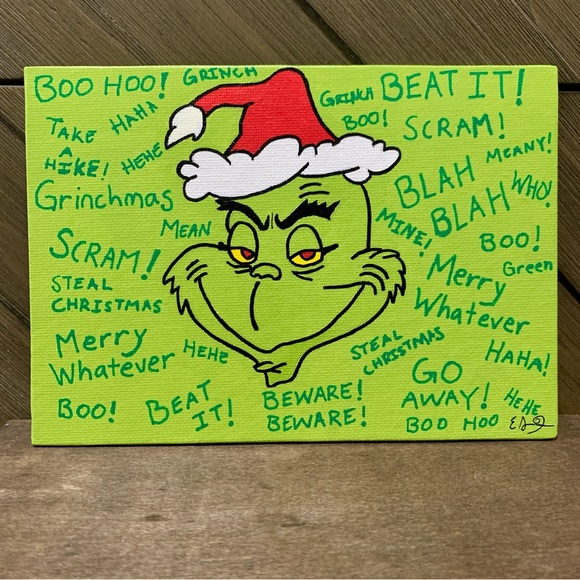 BOO HOO!
GRINCH
HAHA
TAKE
A
HIKE!
HEHE
Grinchmas
MEAN
SCRAM!
STEAL
CHRISTMAS
Merry
Whatever
HEHE
BOO!
BEAT
IT!
GRINCH
BOO!
BEAT IT!
SCRAM!
MEANY!
BLAH
BLAH
WHO!
MINE!
BOO!
Green
Merry
Whatever
STEAL
CHRISTMAS
HAHA!
GO
AWAY!
BEWARE!
BEWARE!
HEHE
BOO HOO